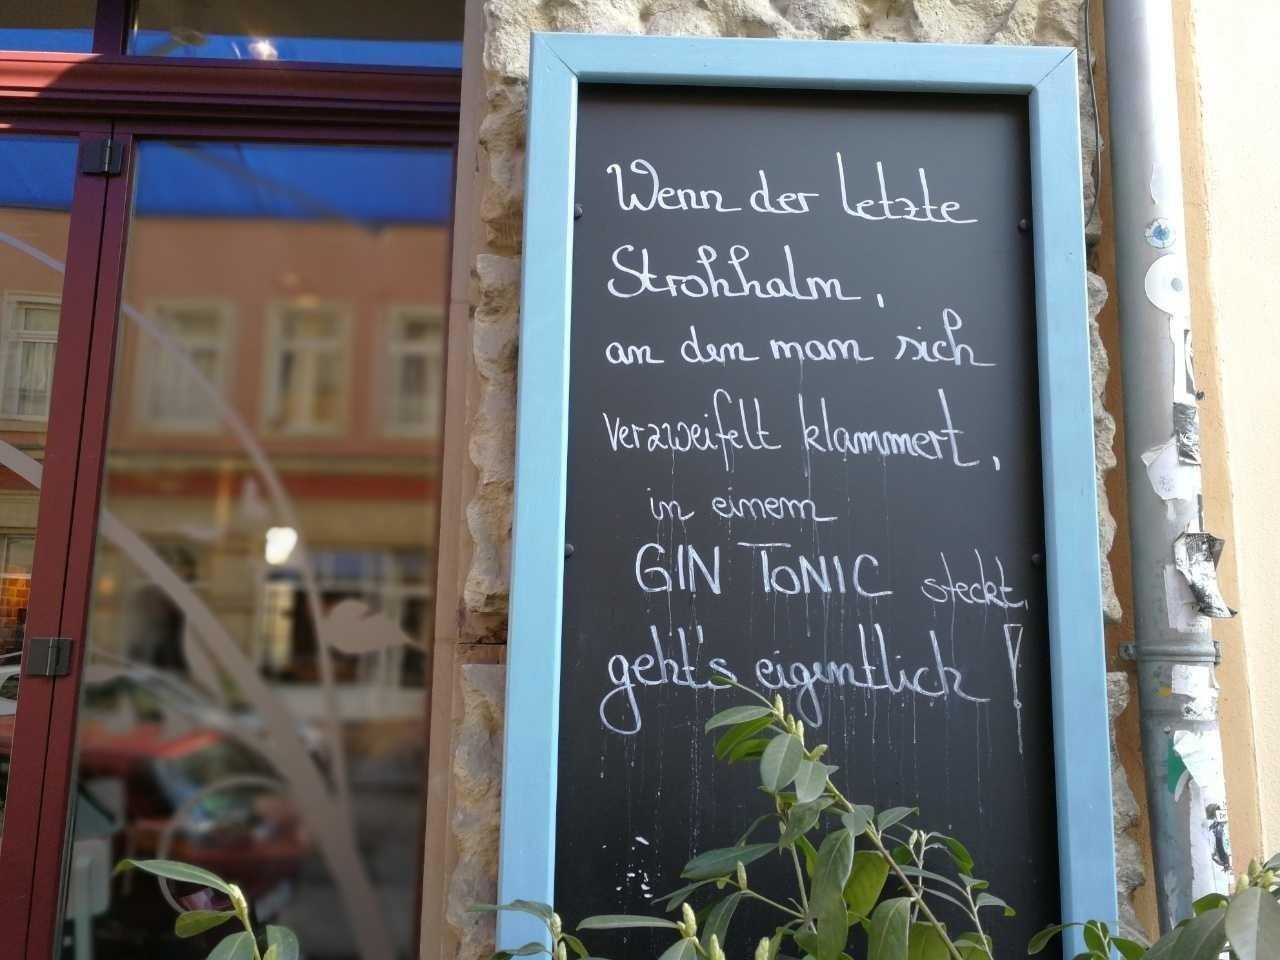 Wenn der letzte
Strohhalm,
an den man sich
verzweifelt klammert,
in einem
GIN TONIC steckt,
geht's eigentlich!